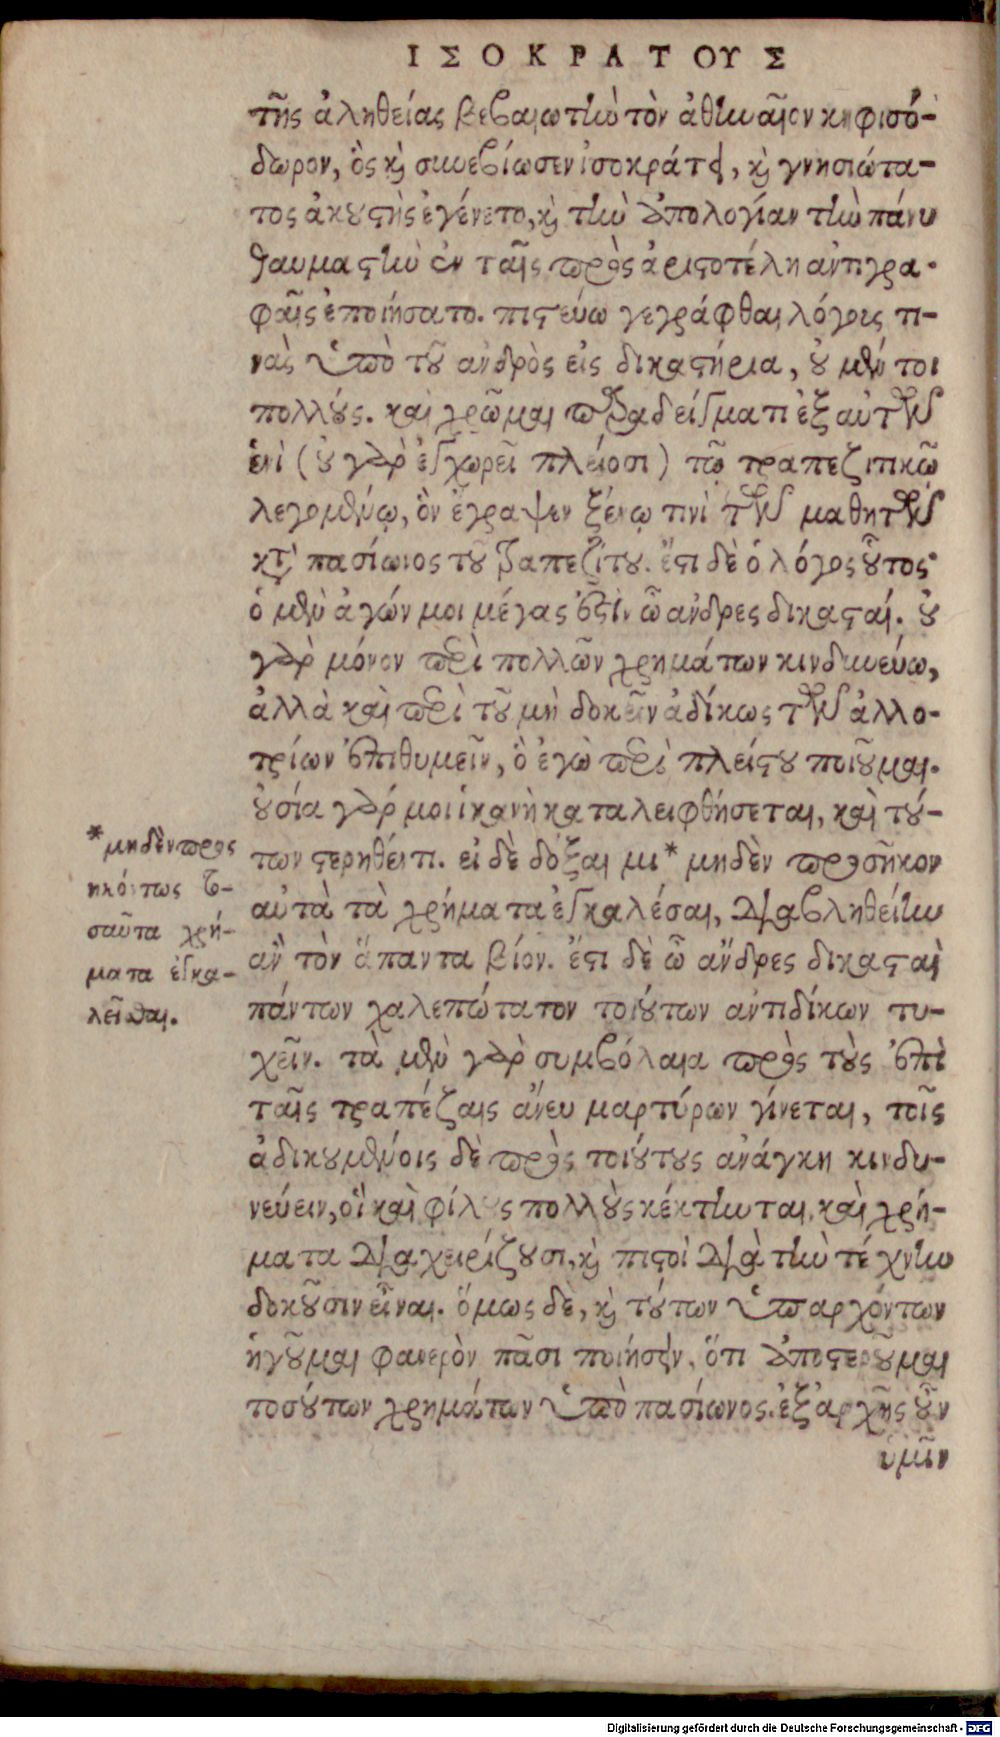 ΙΣΟΚΡΑΤΟΥΣ
τῆς ἀληθείας βεβαιωτὴν τὸν ἀθηναῖον κηφισό-
δωρον, ὃς καὶ συνεβίωσεν ἰσοκράτει, καὶ γνησιώτα-
τος ἀκουστὴς ἐγένετο, καὶ τὴν ἀπολογίαν τὴν πάνυ
θαυμαστὴν ἐν ταῖς πρὸς ἀριστοτέλη ἀντιγρα-
φαῖς ἐποιήσατο. πιστεύω γεγράφθαι λόγους τι-
νὰς ὑπὸ τοῦ ἀνδρὸς εἰς δικαστήρια, οὐ μέν τοι
πολλούς. καὶ χρῶμαι παραδείγματι ἐξ αὐτῶν
ἑνὶ (οὐ γὰρ ἐγχωρεῖ πλείοσι) τῷ τραπεζιτικῷ
λεγομένῳ, ὃν ἔγραψεν ξένῳ τινὶ τῶν μαθητῶν
κατὰ πασίωνος τοῦ τραπεζίτου. ἔστι δὲ ὁ λόγος οὗτος·
ὁ μὲν ἀγών μοι μέγας ἐστὶν ὦ ἄνδρες δικασταί. οὐ
γὰρ μόνον περὶ πολλῶν χρημάτων κινδυνεύω,
ἀλλὰ καὶ περὶ τοῦ μὴ δοκεῖν ἀδίκως τῶν ἀλλο-
τρίων ἐπιθυμεῖν, ὃ ἐγὼ περὶ πλείστου ποιοῦμαι.
οὐσία γάρ μοι ἱκανὴ καταλειφθήσεται, καὶ τού-
των στερηθέντι. εἰ δὲ δόξαι μι* μηδὲν προσῆκον
αὐτὰ τὰ χρήματα ἐγκαλέσαι, διαβληθείην
ἂν τὸν ἅπαντα βίον. ἔστι δὲ ὦ ἄνδρες δικασταὶ
πάντων χαλεπώτατον τοιούτων ἀντιδίκων τυ-
χεῖν. τὰ μὲν γὰρ συμβόλαια πρὸς τοὺς ἐπὶ
ταῖς τραπέζαις ἄνευ μαρτύρων γίνεται, τοῖς
ἀδικουμένοις δὲ πρὸς τοιούτους ἀνάγκη κινδυ-
νεύειν, οἳ καὶ φίλους πολλοὺς κέκτηνται, καὶ χρή-
ματα διαχειρίζουσι, καὶ πιστοὶ διὰ τὴν τέχνην
δοκοῦσιν εἶναι. ὅμως δὲ, καὶ τούτων ὑπαρχόντων
ἡγοῦμαι φανερὸν πᾶσι ποιήσειν, ὅτι ἀποστεροῦμαι
τοσούτων χρημάτων ὑπὸ πασίωνος. ἐξ ἀρχῆς οὖν
ὑμῖν
*μηδὲν προσ
ηκόντως το-
σαῦτα χρή-
ματα ἐγκα-
λεῖσθαι.
Digitalisierung gefördert durch die Deutsche Forschungsgemeinschaft - DFG